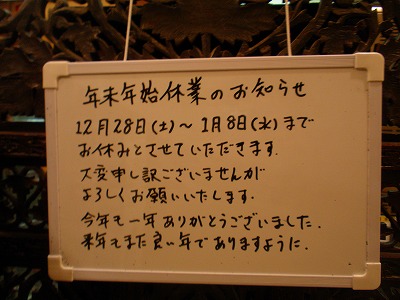 年末年始休業のお知らせ
12月28日(土)～1月8日(水)まで
お休みとさせていただきます.
大変申し訳ございませんが
よろしくお願いいたします.
今年も一年ありがとうございました.
来年もまた良い年でありますように.